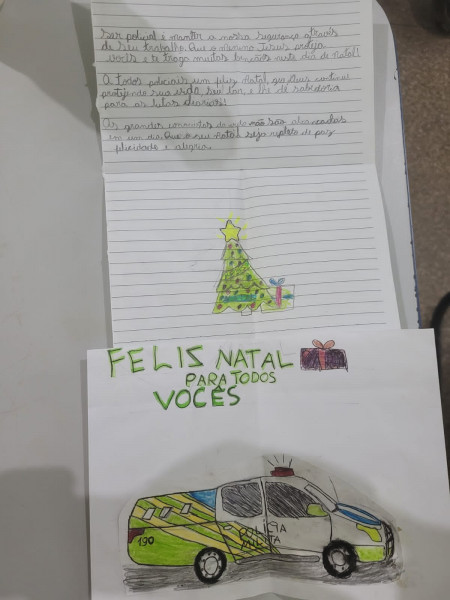 Ser policial é manter a nossa segurança através
de seu trabalho. Que o menino Jesus proteja
vocês e te traga muitas bençãos neste dia de Natal!
A todos policiais um feliz Natal, que Deus continue
protejendo sua vida, seu lar, e lhe dê sabedoria
para as lutas diárias!
As grandes conquistas da vida não são alcançadas
em um dia. Que o seu natal seja repleto de paz
felicidade e alegria.
FELIS NATAL
PARA TODOS
VOCÊS
190
POLÍCIA
MILITA